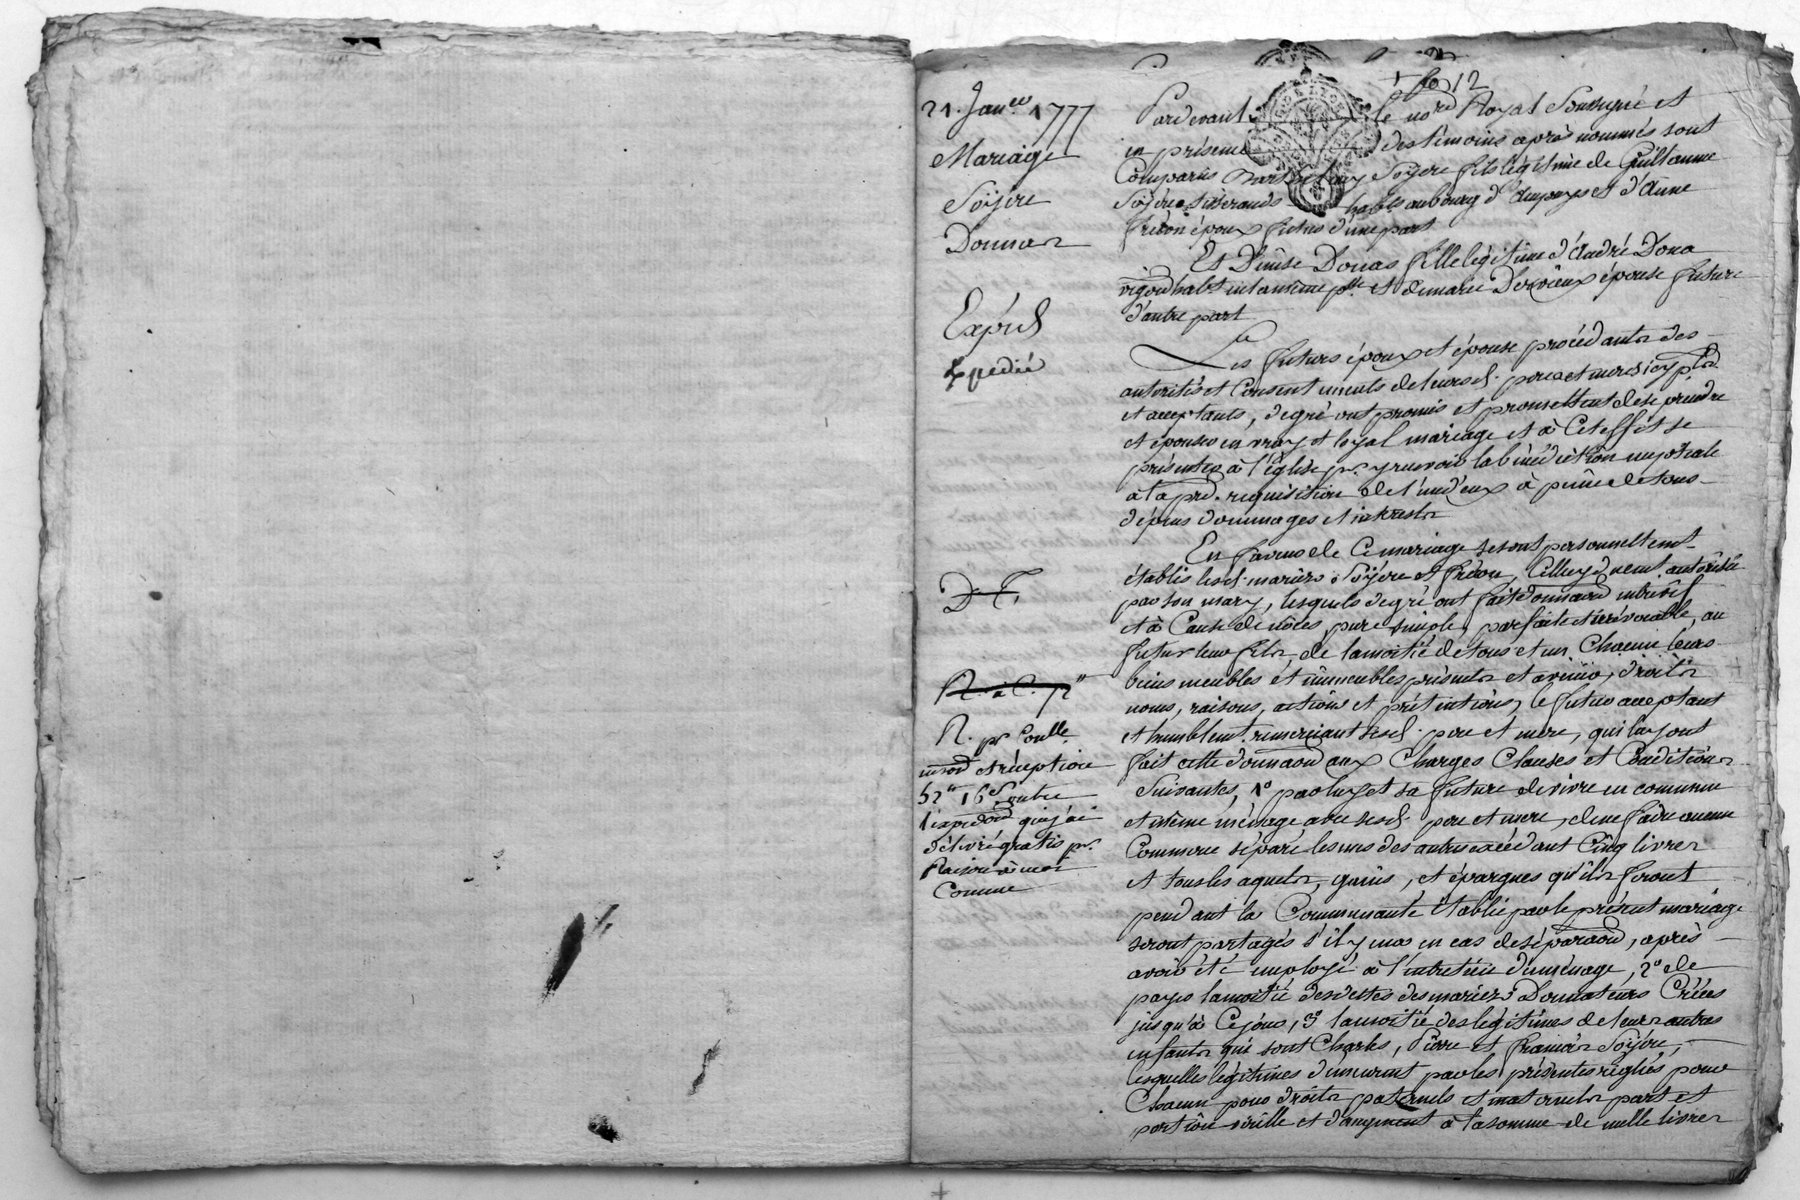 fo 12
21. Janer 1777
Mariage
Soijere
Donnaon
Expédié
D T.
R. à C. 72"
R. pr Conlle
insoon et réception
52" 16s outre
1 expedoon que j'ai
délivré gratis pr.
Raison à moi
Connue
Pardevant le nore Royal Soussigné et
en présence des témoins après nommés sont
Comparus Barthelemy Soijere fils légitime de Guillaume
Soijere tisserands habts au bourg d'Ampuys et d'Anne
Frédon époux futur d'une part
Et Denise Donas fille légitime d'André Dona
vigon habt en la même psse et de marie Dervieux épouse future
d'autre part
Les futurs époux et épouse procédants des
autorités et Consentements de leursd. peres et meres icy pnts
et acceptants, de gré ont promis et promettent de se prendre
et épouser en vray et loyal mariage et à Cet effet se
présenter à l'église pr. y recevoir la bénédiction nuptiale
à la pre. requisition de l'un d'eux à peine de tous
dépens dommages et intérêsts
En faveur de Ce mariage se sont personnellement
établis lesd. mariés Soijere et Frédon, Celle cy dument autorisée
par son mary, lesquels de gré ont fait donnaon entrevif
et à Cause de nôces, pure simple, parfaite et irrévocable, au
futur leur fils, de la moitié de tous et un Chacun leurs
biens meubles et immeubles présents et avenir, droits
noms, raisons, actions et prétentions, le futur acceptant
et humblemt. remerciant sesd. pere et mere, qui luy ont
fait cette donnaon aux Charges Clauses et Conditions
Suivantes, 1o par luy et sa future de vivre en commun
et même ménage avec sesd. pere et mere, de ne faire aucun
Commerce séparé les uns des autres excédant Cinq livres
et tous les aquets, gains, et épargnes qu'ils feront
pendant la Communauté établie par le présent mariage
seront partagés s'il y en a en cas de séparaon, après
avoir été employé à l'entretien du ménage, 2o de
payer la moitié des dettes des mariez Donnateurs Créées
jusqu'à Ce jour, 3o la moitié des légitimes de leurs autres
enfants qui sont Charles, Pierre et François Soijere,
lesquelles légitimes demeurent par les présentes réglées pour
Chacun pour droits paternels et maternels part et
portion virille et d'augment à la somme de mille livres